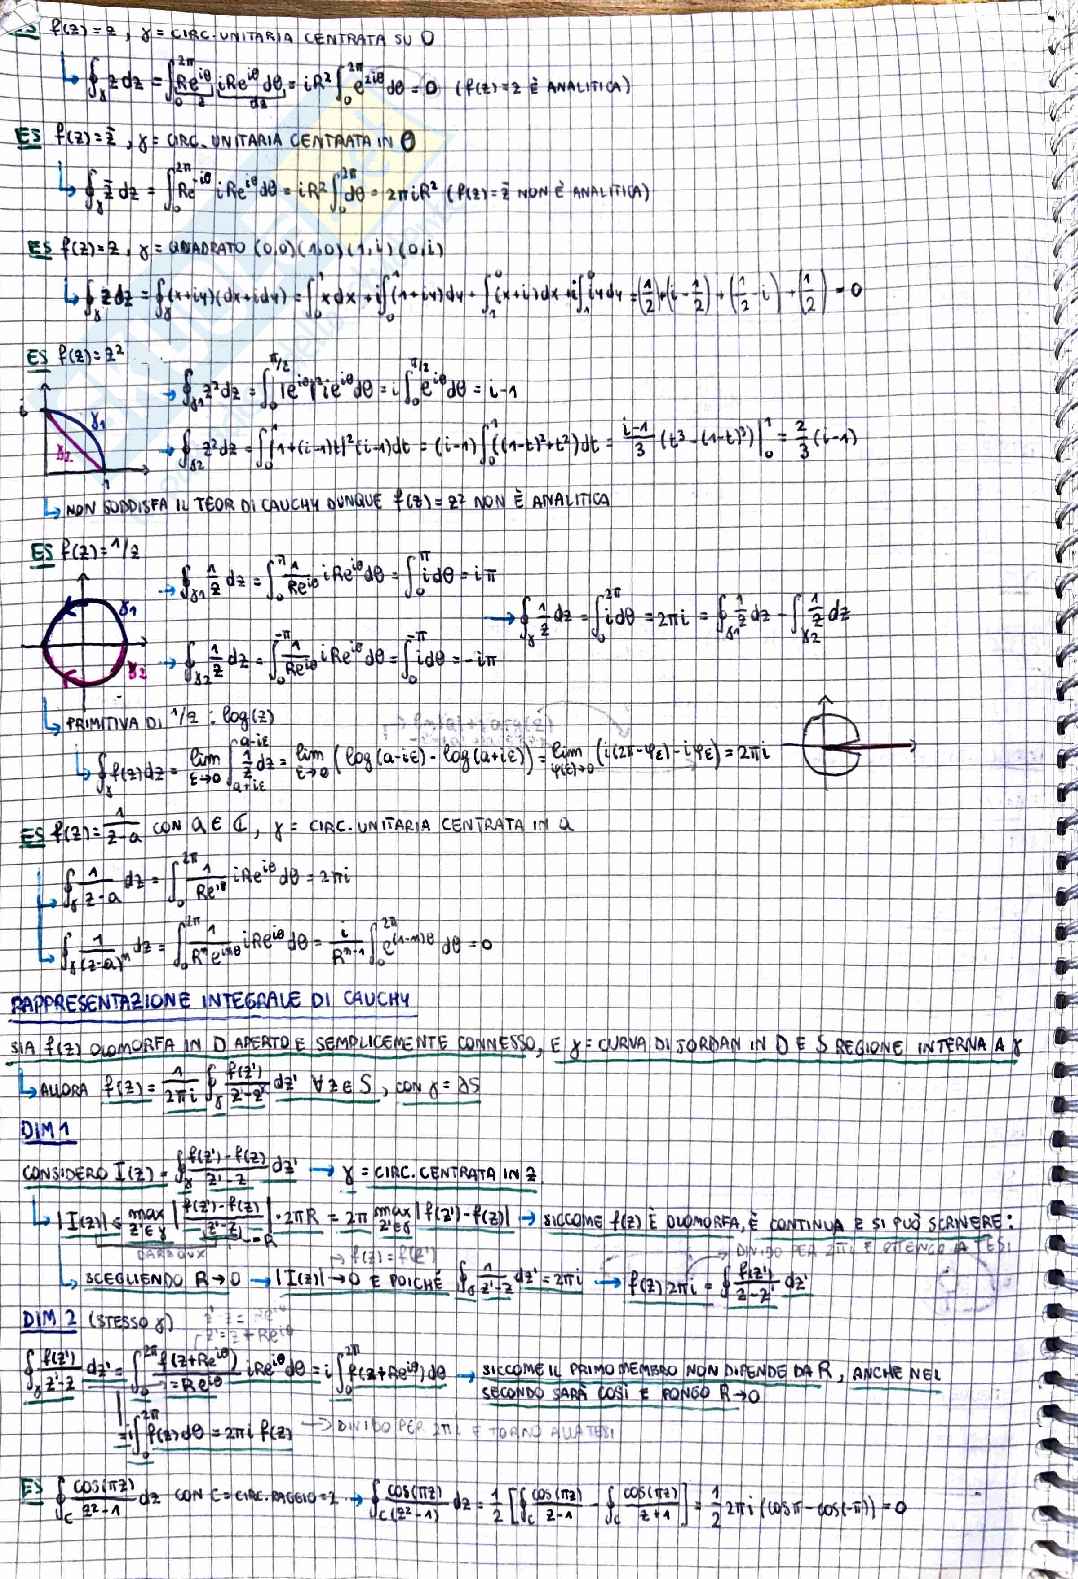 ES f(z)=z, γ = CIRC. UNITARIA CENTRATA SU O
∮_γ z dz = ∫_0^{2π} Re^{iθ} iRe^{iθ} dθ = iR² ∫_0^{2π} e^{2iθ} dθ = 0 (f(z)=z È ANALITICA)
z dz
ES f(z)=z̄, γ = CIRC. UNITARIA CENTRATA IN O
∮_γ z̄ dz = ∫_0^{2π} Re^{-iθ} iRe^{iθ} dθ = iR² ∫_0^{2π} dθ = 2πiR² (f(z)=z̄ NON È ANALITICA)
ES f(z)=z, γ = QUADRATO (0,0)(1,0)(1,i)(0,i)
∮_γ z dz = ∮_γ (x+iy)(dx+idy) = ∫_0^1 x dx + i∫_0^1 (1+iy)dy + ∫_1^0 (x+i)dx + i∫_1^0 iy dy = (1/2)+(i-1/2)+(-1/2-i)+(1/2) = 0
ES f(z)=z²
i γ1 γ2 1
∮_{γ1} z² dz = ∫_0^{π/2} |e^{iθ}|² ie^{iθ} dθ = i∫_0^{π/2} e^{iθ} dθ = i-1
∮_{γ2} z² dz = ∫_0^1 |1+(i-1)t|² (i-1)dt = (i-1)∫_0^1 ((1-t)²+t²)dt = (i-1)/3 (t³-(1-t)³)|_0^1 = 2/3 (i-1)
NON SODDISFA IL TEOR DI CAUCHY DUNQUE f(z)=z² NON È ANALITICA
ES f(z)=1/z
γ1 γ2
∮_{γ1} 1/z dz = ∫_0^π 1/(Re^{iθ}) iRe^{iθ} dθ = ∫_0^π i dθ = iπ
∮_γ 1/z dz = ∫_0^{2π} i dθ = 2πi = ∮_{γ1} 1/z dz - ∫_{γ2} 1/z dz
∮_{γ2} 1/z dz = ∫_0^{-π} 1/(Re^{iθ}) iRe^{iθ} dθ = ∫_0^{-π} i dθ = -iπ
PRIMITIVA DI 1/z : log(z)
∮_γ f(z) dz = lim_{ε→0} ∫_{a+iε}^{a-iε} 1/z dz = lim_{ε→0} (log(a-iε) - log(a+iε)) = lim_{φ(ε)→0} (i(2π-φε)-iφε) = 2πi
ES f(z)= 1/(z-a) CON a ∈ ℂ, γ = CIRC. UNITARIA CENTRATA IN a
∮_γ 1/(z-a) dz = ∫_0^{2π} 1/(Re^{iθ}) iRe^{iθ} dθ = 2πi
∮_γ 1/(z-a)^n dz = ∫_0^{2π} 1/(R^n e^{inθ}) iRe^{iθ} dθ = i/R^{n-1} ∫_0^{2π} e^{i(1-n)θ} dθ = 0
RAPPRESENTAZIONE INTEGRALE DI CAUCHY
SIA f(z) OLOMORFA IN D APERTO E SEMPLICEMENTE CONNESSO, E γ = CURVA DI JORDAN IN D E S REGIONE INTERNA A γ
ALLORA f(z) = 1/(2πi) ∮_γ f(z')/(z'-z) dz' ∀z∈S, CON γ = ∂S
DIM 1
CONSIDERO I(z) = ∮_γ (f(z')-f(z))/(z'-z) dz' → γ = CIRC. CENTRATA IN z
|I(z)| ≤ max_{z'∈γ} |(f(z')-f(z))/(z'-z)| · 2πR = 2π max_{z'∈γ} |f(z')-f(z)| → SICCOME f(z) È OLOMORFA, È CONTINUA E SI PUÒ SCRIVERE:
DARBOUX =R → f(z)=f(z') → DIVIDO PER 2πi E OTTENGO LA TESI
SCEGLIENDO R→0 → |I(z)|→0 E POICHÉ ∮_γ 1/(z'-z) dz' = 2πi → f(z) 2πi = ∮_γ f(z')/(z-z') dz'
DIM 2 (STESSO γ)
z'-z = Re^{iθ}
z'=z+Re^{iθ}
∮_γ f(z')/(z'-z) dz' = ∫_0^{2π} f(z+Re^{iθ})/(Re^{iθ}) iRe^{iθ} dθ = i∫_0^{2π} f(z+Re^{iθ}) dθ → SICCOME IL PRIMO MEMBRO NON DIPENDE DA R, ANCHE NEL
SECONDO SARÀ COSÌ E PONGO R→0
= i∫_0^{2π} f(z) dθ = 2πi f(z) → DIVIDO PER 2πi E TORNO ALLA TESI
ES ∮_C cos(πz)/(z²-1) dz CON C = CIRC. RAGGIO=2 → ∮_C cos(πz)/(z²-1) dz = 1/2 [∮_C cos(πz)/(z-1) - ∮_C cos(πz)/(z+1)] = 1/2 2πi (cosπ - cos(-π)) = 0